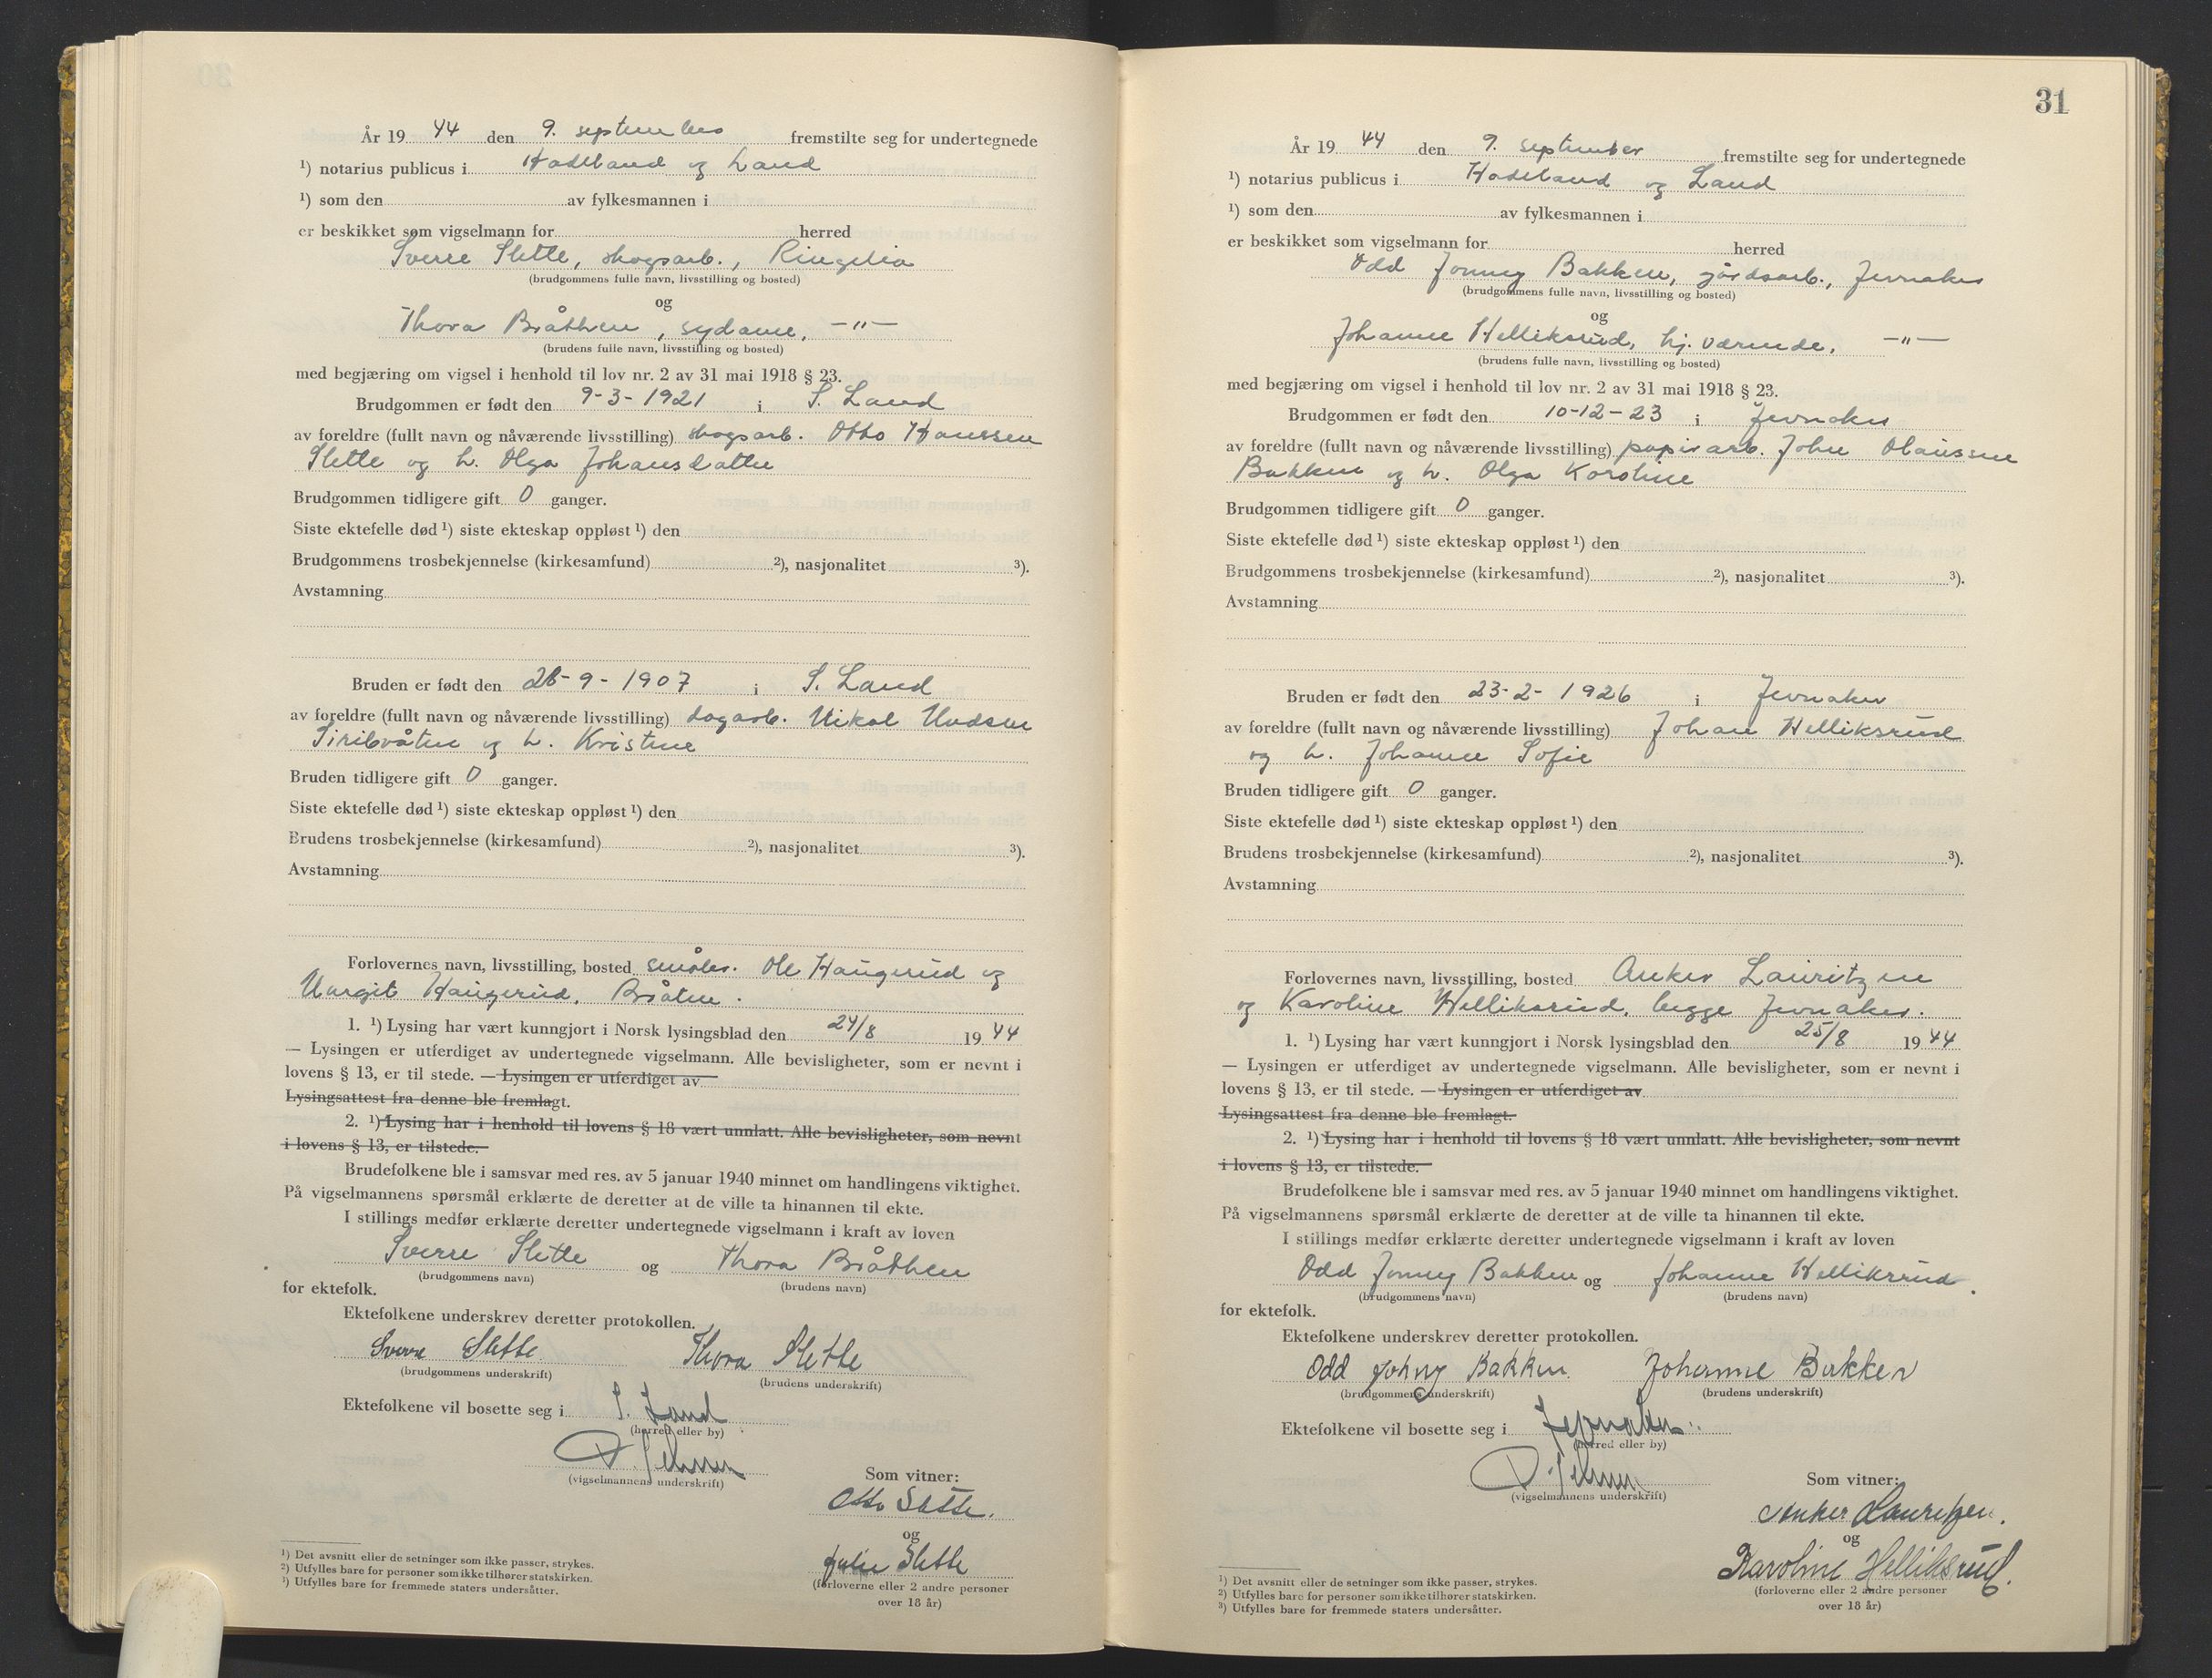 År 19 44 den 9. september fremstilte seg for undertegnede
¹) notarius publicus i Hadeland og Land
¹) som den av fylkesmannen i
er beskikket som vigselmann for herred
Sverre Slette, skogsarb., Ringelia
(brudgommens fulle navn, livsstilling og bosted)
og
Thora Bråthen, sydame, —"—
(brudens fulle navn, livsstilling og bosted)
med begjæring om vigsel i henhold til lov nr. 2 av 31 mai 1918 § 23.
Brudgommen er født den 9-3-1921 i S. Land
av foreldre (fullt navn og nåværende livsstilling) skogsarb. Otto Hanssen
Slette og h. Olga Johansdatter
Brudgommen tidligere gift 0 ganger.
Siste ektefelle død ¹) siste ekteskap oppløst ¹) den
Brudgommens trosbekjennelse (kirkesamfund) ²), nasjonalitet ³).
Avstamning
Bruden er født den -9-1907 i S. Land
av foreldre (fullt navn og nåværende livsstilling) dagarb. Mikal
og h. Kristine
Bruden tidligere gift 0 ganger.
Siste ektefelle død ¹) siste ekteskap oppløst ¹) den
Brudens trosbekjennelse (kirkesamfund) ²), nasjonalitet ³).
Avstamning
Forlovernes navn, livsstilling, bosted småbr. Ole Haugerud og
Margit Haugerud, Bråten.
1. ¹) Lysing har vært kunngjort i Norsk lysingsblad den 24/8 19 44
— Lysingen er utferdiget av undertegnede vigselmann. Alle bevisligheter, som er nevnt i
lovens § 13, er til stede. — Lysingen er utferdiget av
Lysingsattest fra denne ble fremlagt.
2. ¹) Lysing har i henhold til lovens § 18 vært unnlatt. Alle bevisligheter, som nevnt
i lovens § 13, er tilstede.
Brudefolkene ble i samsvar med res. av 5 januar 1940 minnet om handlingens viktighet.
På vigselmannens spørsmål erklærte de deretter at de ville ta hinannen til ekte.
I stillings medfør erklærte deretter undertegnede vigselmann i kraft av loven
Sverre Slette og Thora Bråthen
(brudgommens navn) (brudens navn)
for ektefolk.
Ektefolkene underskrev deretter protokollen.
Sverre Slette Thora Slette
(brudgommens underskrift) (brudens underskrift)
Ektefolkene vil bosette seg i S. Land
(herred eller by)
(vigselmannens underskrift)
Som vitner:
Otto Slette.
og
Julie Slette
(forloverne eller 2 andre personer
over 18 år)
¹) Det avsnitt eller de setninger som ikke passer, strykes.
²) Utfylles bare for personer som ikke tilhører statskirken.
³) Utfylles bare for fremmede staters undersåtter.
31
År 19 44 den 9. september fremstilte seg for undertegnede
¹) notarius publicus i Hadeland og Land
¹) som den av fylkesmannen i
er beskikket som vigselmann for herred
Odd Jonny Bakken, gårdsarb., Jevnaker
(brudgommens fulle navn, livsstilling og bosted)
og
Johanne Helliksrud, hj. værende, —"—
(brudens fulle navn, livsstilling og bosted)
med begjæring om vigsel i henhold til lov nr. 2 av 31 mai 1918 § 23.
Brudgommen er født den 10-12-23 i Jevnaker
av foreldre (fullt navn og nåværende livsstilling) papirarb. John Olaussen
Bakken og h. Olga Karoline
Brudgommen tidligere gift 0 ganger.
Siste ektefelle død ¹) siste ekteskap oppløst ¹) den
Brudgommens trosbekjennelse (kirkesamfund) ²), nasjonalitet ³).
Avstamning
Bruden er født den 23-2-1926 i Jevnaker
av foreldre (fullt navn og nåværende livsstilling) Johan Helliksrud
og h. Johanne Sofie
Bruden tidligere gift 0 ganger.
Siste ektefelle død ¹) siste ekteskap oppløst ¹) den
Brudens trosbekjennelse (kirkesamfund) ²), nasjonalitet ³).
Avstamning
Forlovernes navn, livsstilling, bosted Anker Lauritzen
og Karoline Helliksrud, begge Jevnaker.
1. ¹) Lysing har vært kunngjort i Norsk lysingsblad den 25/8 19 44
— Lysingen er utferdiget av undertegnede vigselmann. Alle bevisligheter, som er nevnt i
lovens § 13, er til stede. — Lysingen er utferdiget av
Lysingsattest fra denne ble fremlagt.
2. ¹) Lysing har i henhold til lovens § 18 vært unnlatt. Alle bevisligheter, som nevnt
i lovens § 13, er tilstede.
Brudefolkene ble i samsvar med res. av 5 januar 1940 minnet om handlingens viktighet.
På vigselmannens spørsmål erklærte de deretter at de ville ta hinannen til ekte.
I stillings medfør erklærte deretter undertegnede vigselmann i kraft av loven
Odd Jonny Bakken og Johanne Helliksrud.
(brudgommens navn) (brudens navn)
for ektefolk.
Ektefolkene underskrev deretter protokollen.
Odd Johny Bakken Johanne Bakken
(brudgommens underskrift) (brudens underskrift)
Ektefolkene vil bosette seg i Jevnaker.
(herred eller by)
(vigselmannens underskrift)
Som vitner:
Anker Lauritzen.
og
Karoline Helliksrud.
(forloverne eller 2 andre personer
over 18 år)
¹) Det avsnitt eller de setninger som ikke passer, strykes.
²) Utfylles bare for personer som ikke tilhører statskirken.
³) Utfylles bare for fremmede staters undersåtter.